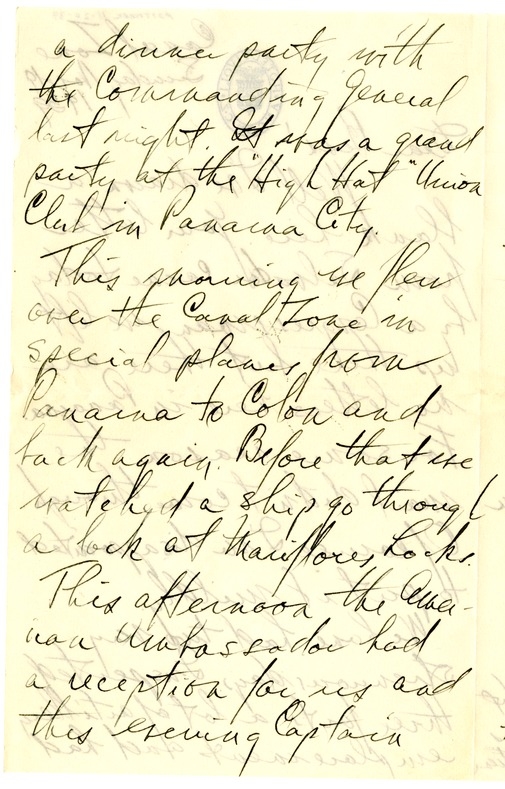 a dinner party with
the Commanding General
last night. It was a grand
party at the "High Hat" Union
Club in Panama City.
This morning we flew
over the Canal Zone in
special planes from
Panama to Colon and
back again. Before that we
watched a ship go through
a lock at Miraflores Locks.
This afternoon the Amer-
ican Ambassador had
a reception for us and
this evening Captain